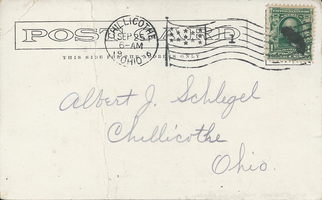 CHILLICOTHE
SEP 25
6-AM
OHIO
POST CARD
THIS SIDE FOR THE ADDRESS ONLY
1
Albert J. Schlegel
Chillicothe
Ohio.